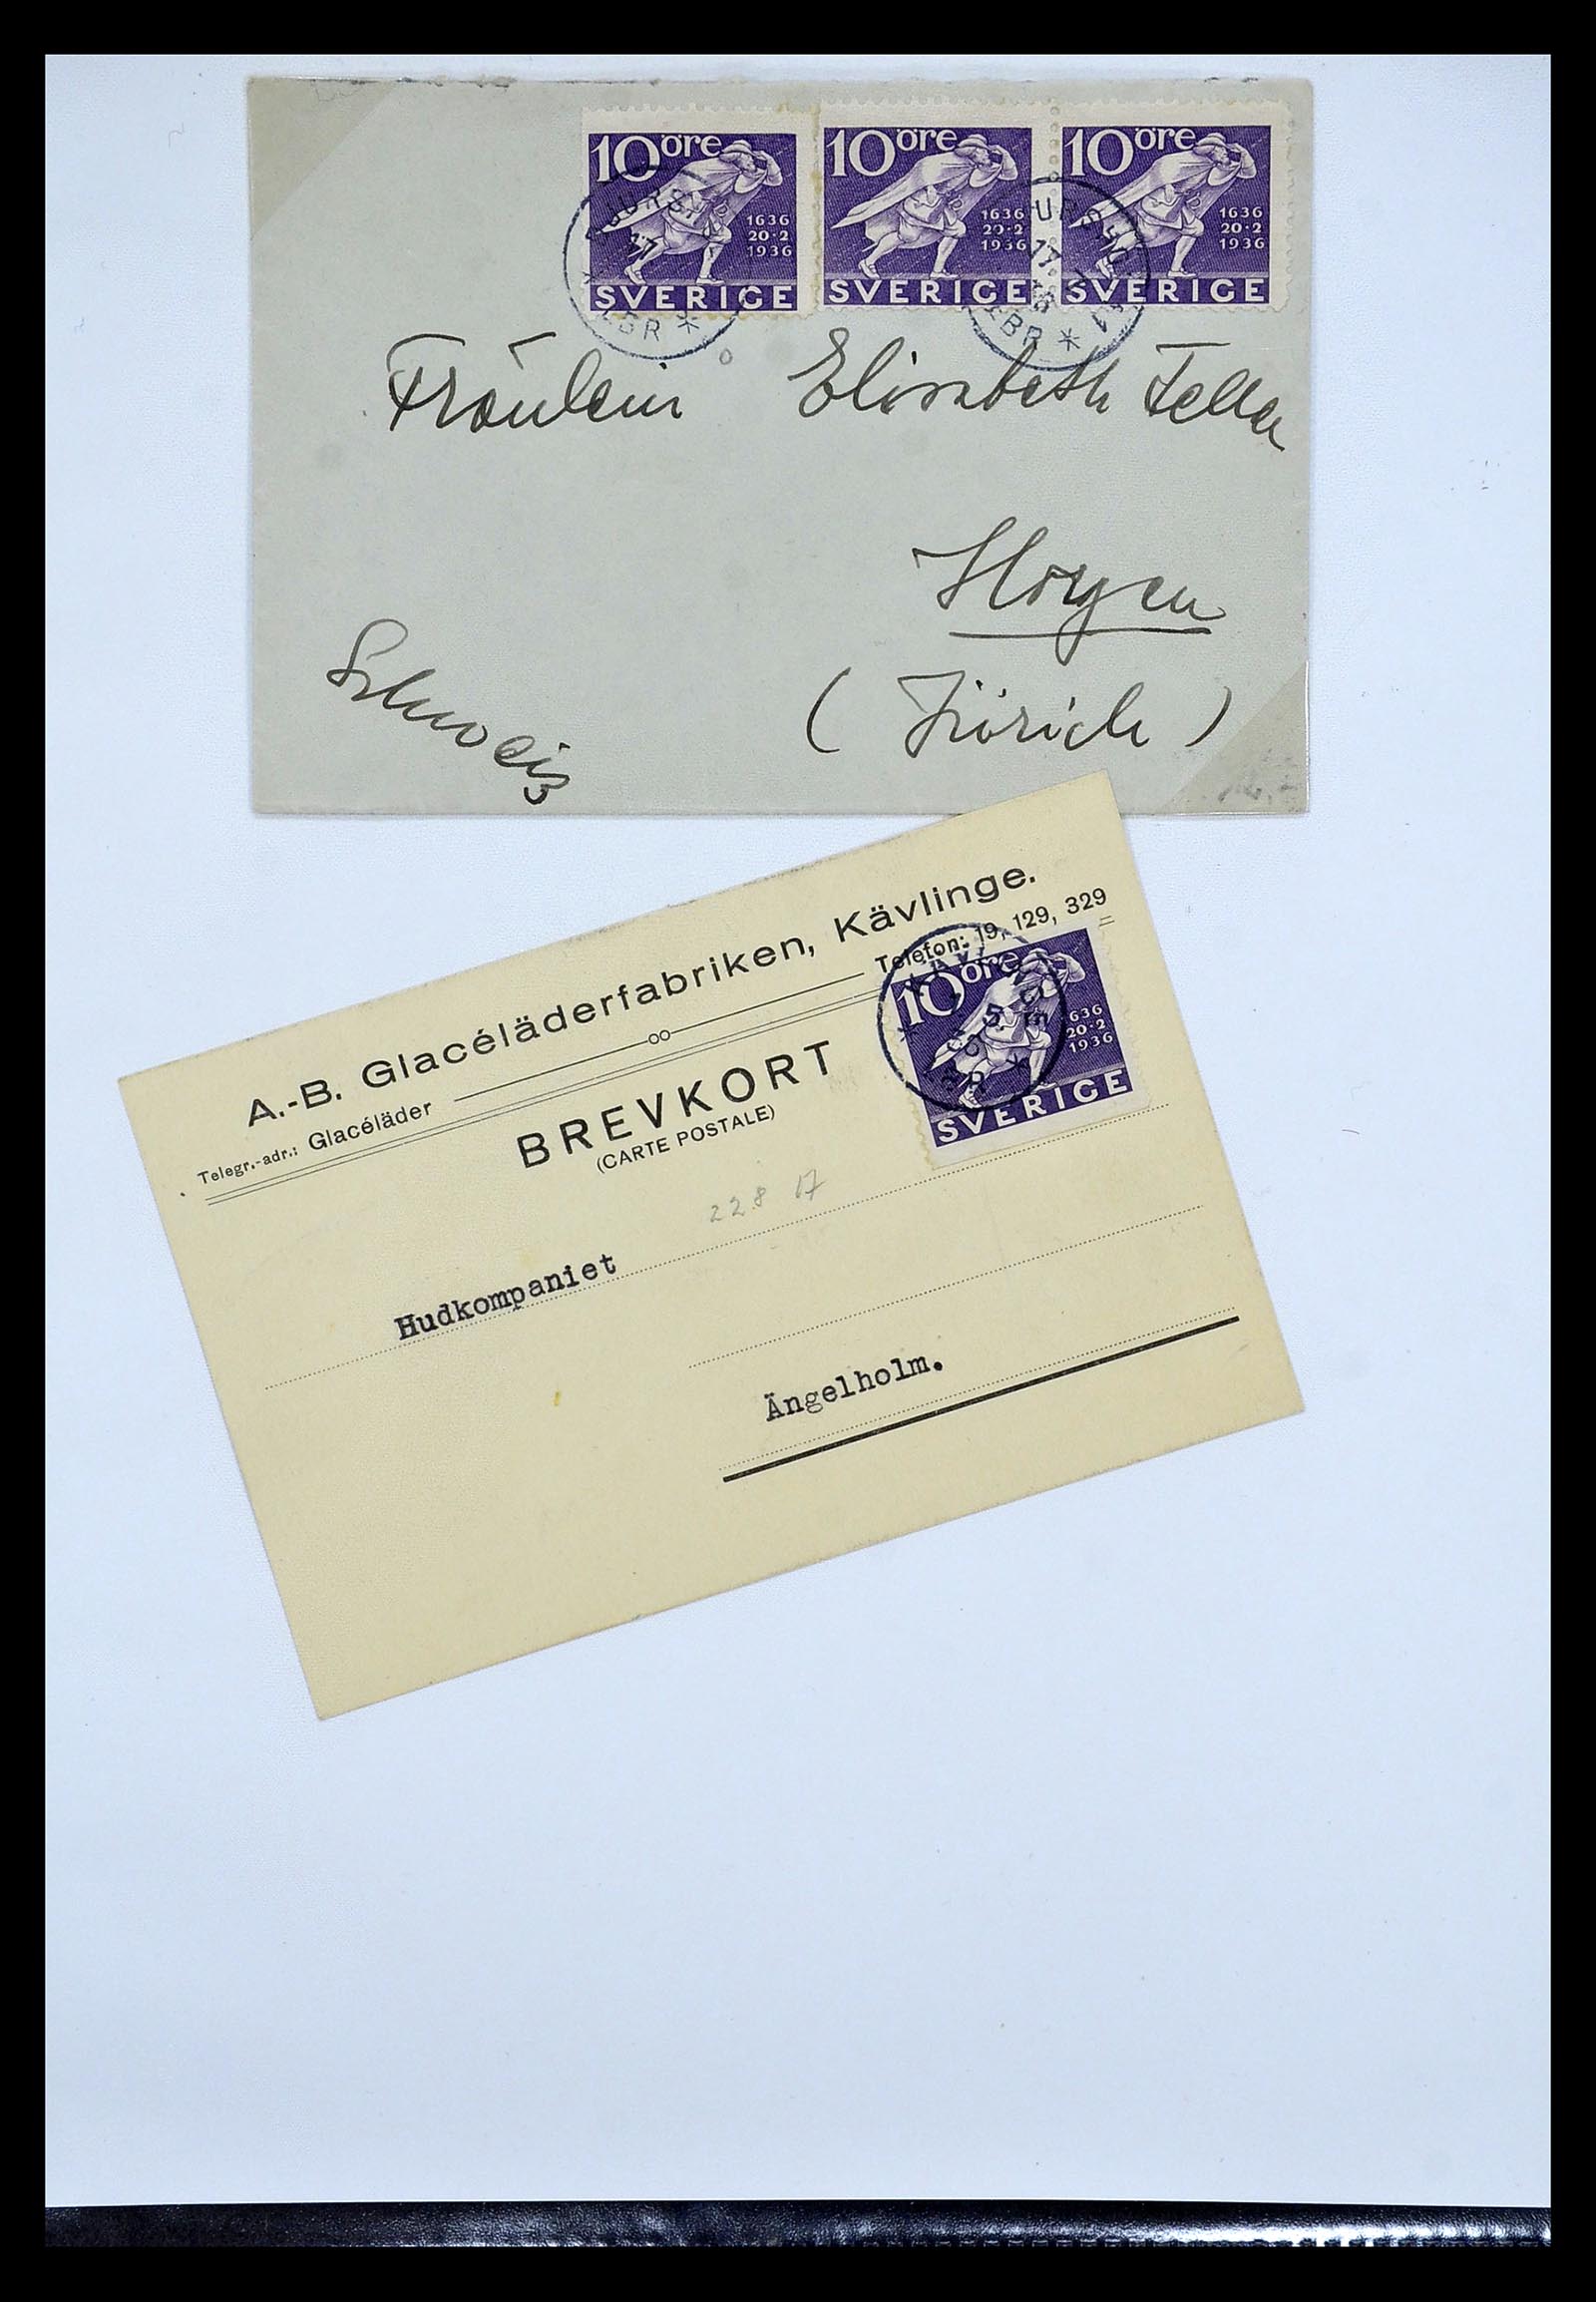 10 öre 10 öre 10 öre
1636 1636 1636
20·2 20·2 20·2
1936 1936 1936
SVERIGE SVERIGE SVERIGE
17 17
LBR LBR
Fräulein Elisabeth Feller
Horgen
(Zürich)
Schweiz
A.-B. Glacéläderfabriken, Kävlinge.
Telegr.-adr.: Glacéläder
Telefon: 19, 129, 329
BREVKORT
(CARTE POSTALE)
10 öre
1636
20·2
1936
SVERIGE
228 17
Hudkompaniet
Ängelholm.